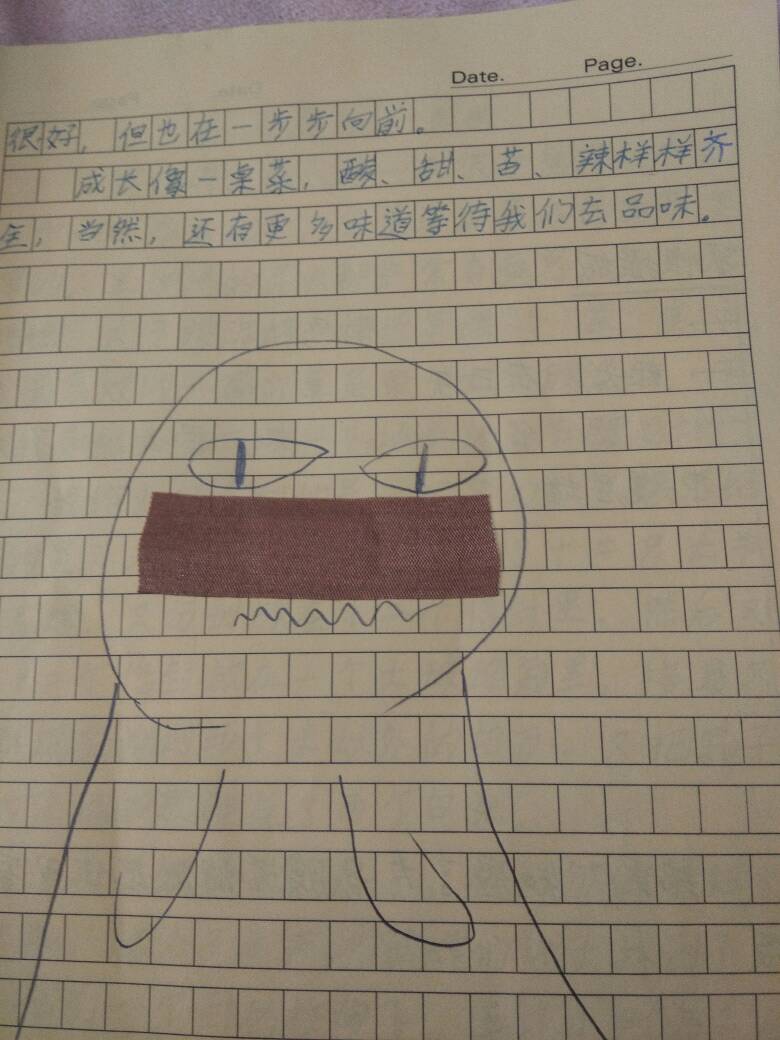 Date. Page.
很好，但也在一步步向前。
成长像一桌菜，酸、甜、苦、辣样样齐
全，当然，还有更多味道等待我们去品味。